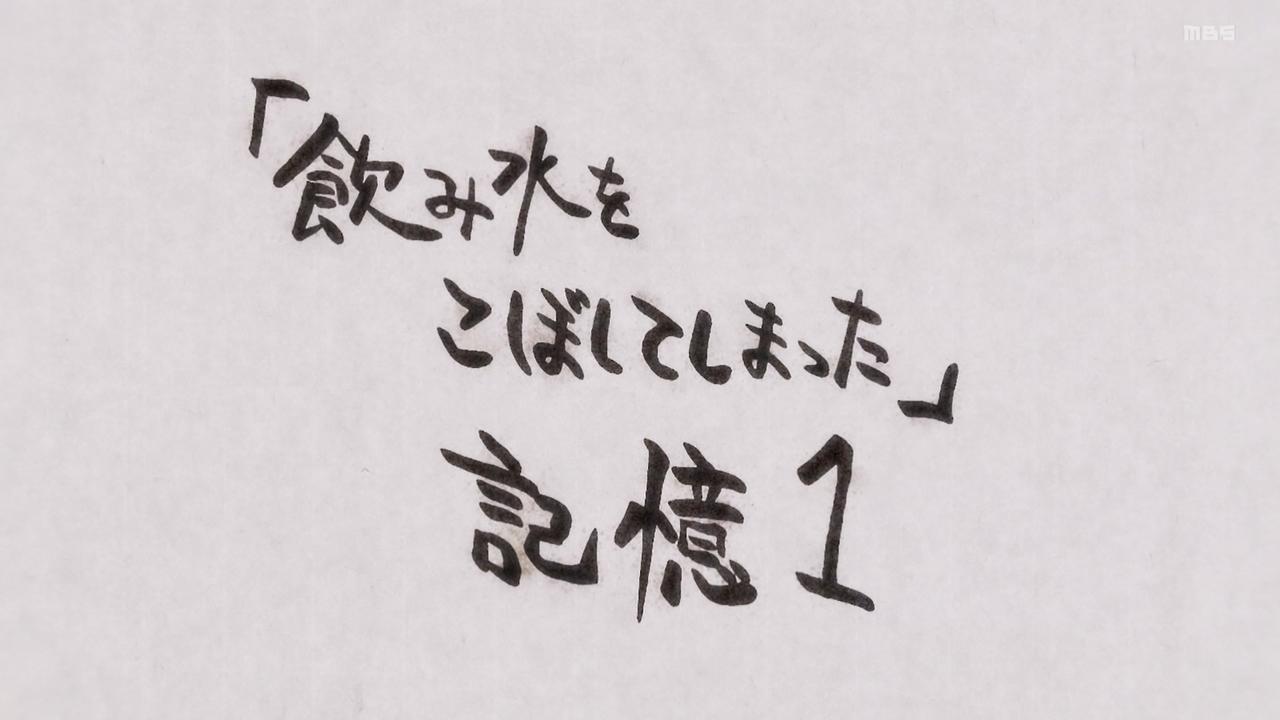 MBS
「飲み水を
こぼしてしまった」
記憶1